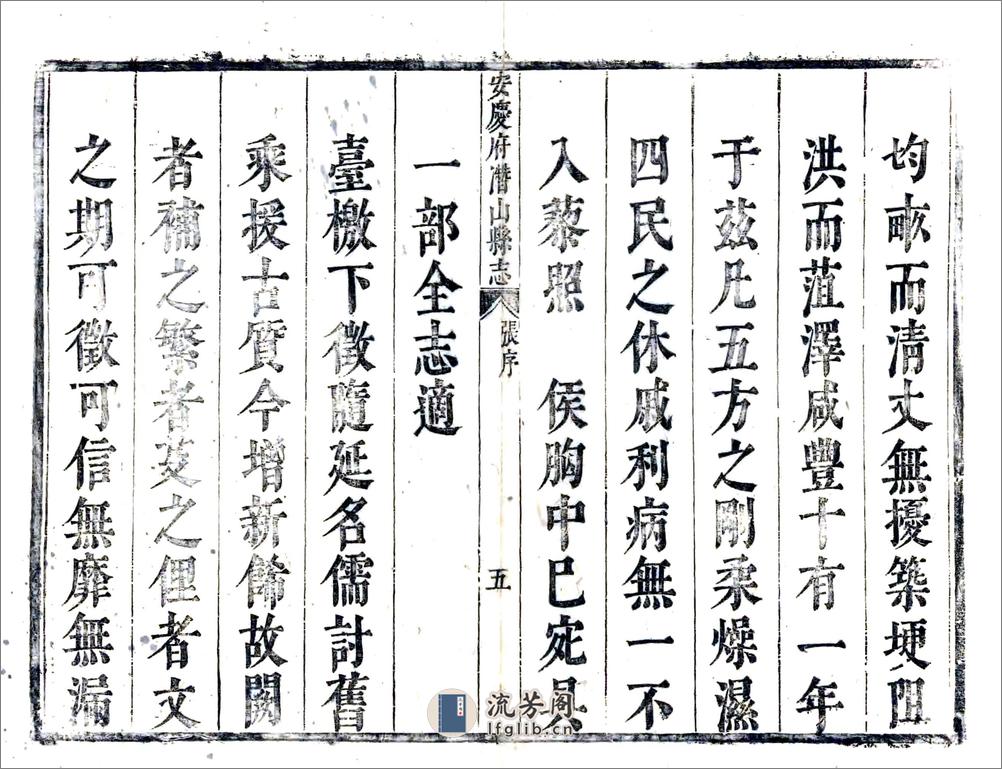 均畝而清丈無擾築埂阻
洪而菹澤咸豐十有一年
于茲凡五方之剛柔燥濕
四民之休戚利病無一不
入藜照　侯胸中已宛具
安慶府潛山縣志　張序　五
一部全志適
臺檄下徵隨延名儒討舊
乘援古質今增新飾故闕
者補之繁者芟之俚者文
之期可徵可信無靡無漏
流芳阁
lfglib.cn